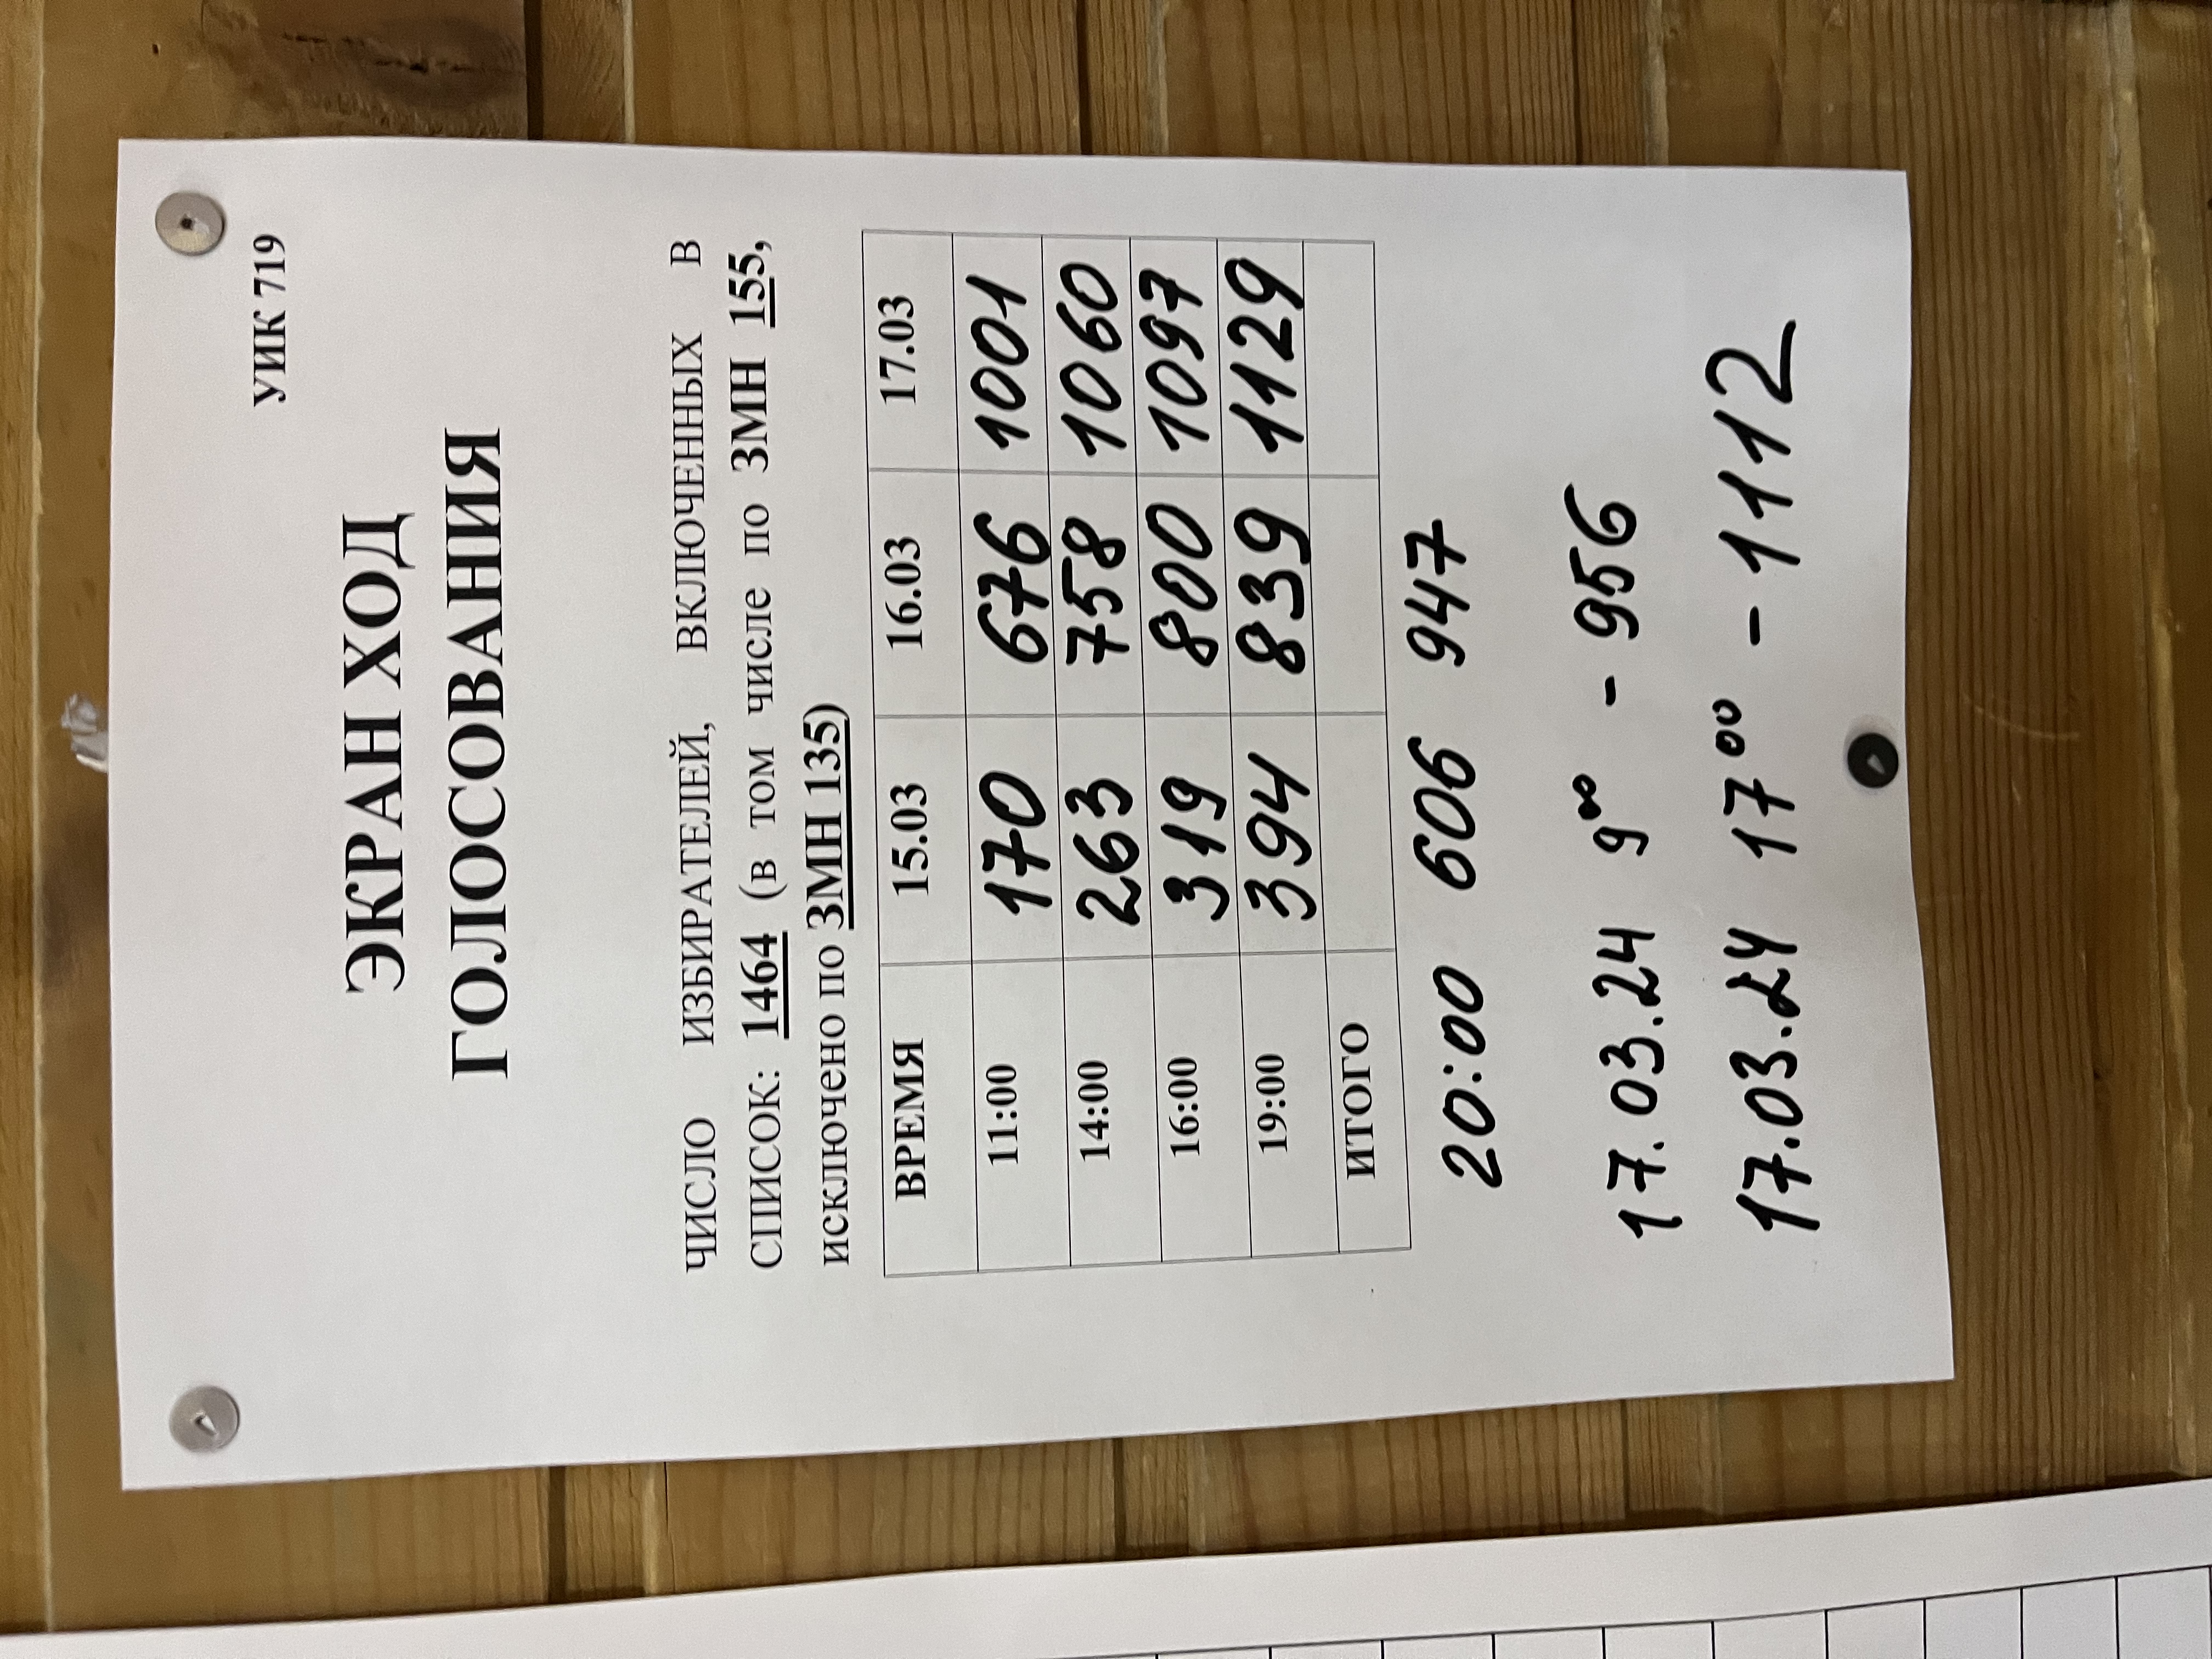 УИК 719
ЭКРАН ХОД
ГОЛОСОВАНИЯ
ЧИСЛО ИЗБИРАТЕЛЕЙ, ВКЛЮЧЕННЫХ В
СПИСОК: 1464 (в том числе по ЗМН 155,
исключено по ЗМН 135)
ВРЕМЯ 15.03 16.03 17.03
11:00 170 676 1001
14:00 263 758 1060
16:00 319 800 1097
19:00 394 839 1129
ИТОГО
20:00 606 947
17.03.24 9⁰⁰ - 956
17.03.24 17⁰⁰ - 1112